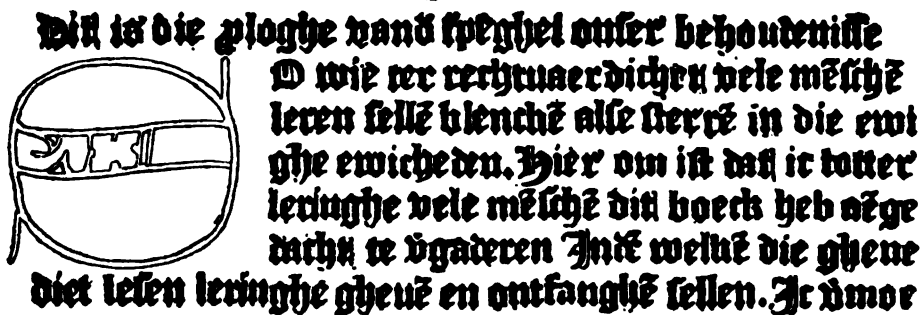 Dit is die ploghe vand̄ speghel onser behoudenisse
O wie ter rechtuaerdichey vele mēschē
leren sellē blenckē alse sterrē in die ewi
ghe ewicheden. Hier om ist dat ic totter
leringhe vele mēschē dit boeck heb aēge
dacht te v̄gaderen Indē welkē die ghene
diet lesen leringhe gheuē en ontfanghē sellen. Ic v̄moe